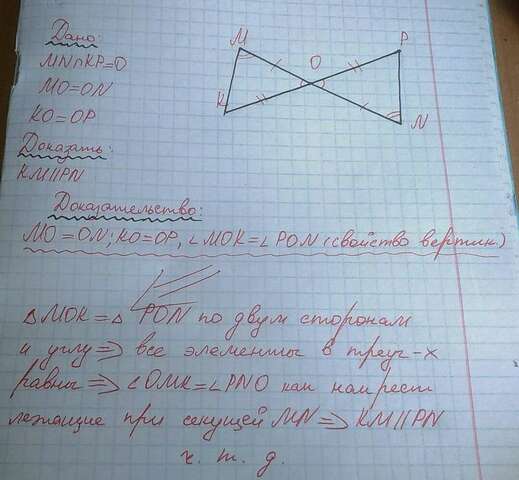 Дано:
MN∩KP=O
MO=ON
KO=OP
Доказать:
KM||PN
M
O
P
K
N
Доказательство:
MO=ON; KO=OP, ∠MOK=∠PON (свойство вертик)
△MOK=△ PON по двум сторонам
и углу ⇒ все элементы в треуг-х
равны ⇒ ∠OMK=∠PNO как накрест
лежащие при секущей MN ⇒ KM||PN
ч. т. д.